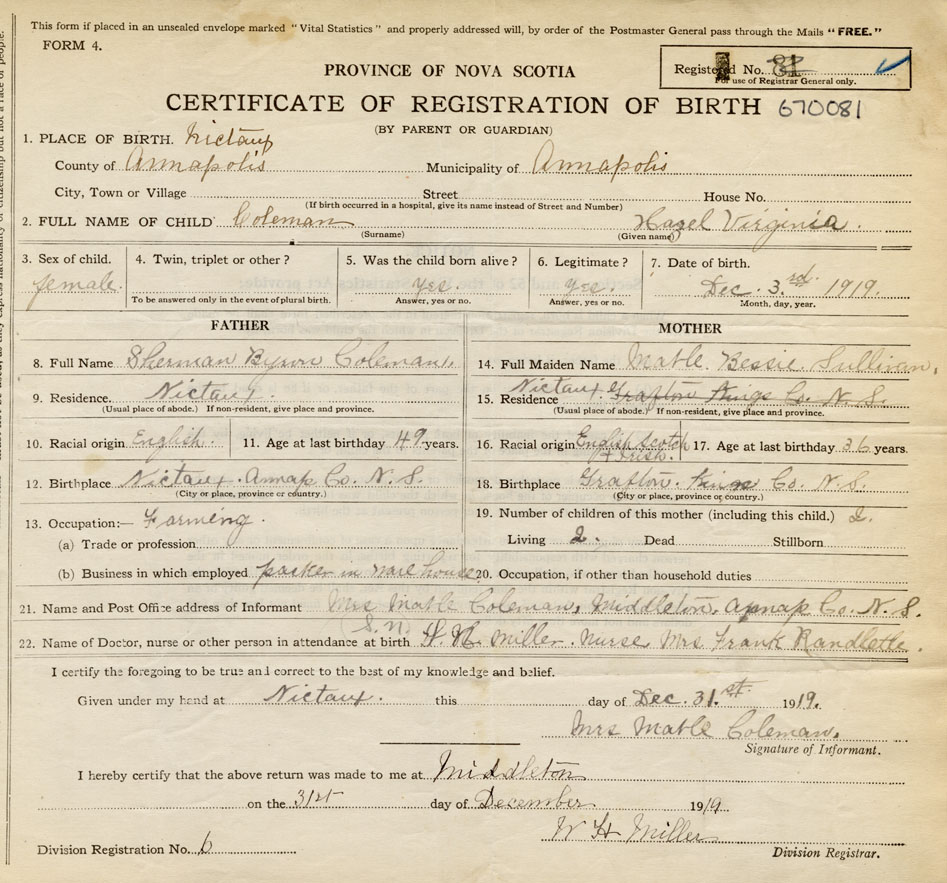 This form if placed in an unsealed envelope marked "Vital Statistics" and properly addressed will, by order of the Postmaster General pass through the Mails "FREE."
FORM 4.
Registered No. 81
For use of Registrar General only.
PROVINCE OF NOVA SCOTIA
CERTIFICATE OF REGISTRATION OF BIRTH 670081
(BY PARENT OR GUARDIAN)
1. PLACE OF BIRTH. Nictaux
County of Annapolis Municipality of Annapolis
City, Town or Village Street House No.
(If birth occurred in a hospital, give its name instead of Street and Number)
2. FULL NAME OF CHILD Coleman Hazel Virginia.
(Surname) (Given name)
3. Sex of child. 4. Twin, triplet or other? 5. Was the child born alive? 6. Legitimate? 7. Date of birth.
female. yes. yes. Dec. 3rd. 1919.
To be answered only in the event of plural birth. Answer, yes or no. Answer, yes or no. Month, day, year.
FATHER MOTHER
8. Full Name Sherman Byron Coleman. 14. Full Maiden Name Mable Bessie Sullivan.
9. Residence. Nictaux. 15. Residence Nictaux. Grafton Kings Co. N. S.
(Usual place of abode.) If non-resident, give place and province. (Usual place of abode.) If non-resident, give place and province.
10. Racial origin English. 11. Age at last birthday 49 years. 16. Racial origin English Scotch + Irish. 17. Age at last birthday 36 years.
12. Birthplace Nictaux. Annap Co. N. S. 18. Birthplace Grafton. Kings Co. N. S.
(City or place, province or country.) (City or place, province or country.)
13. Occupation:— Farming. 19. Number of children of this mother (including this child.) 2.
(a) Trade or profession Living 2. Dead Stillborn
(b) Business in which employed packer in ware house 20. Occupation, if other than household duties
21. Name and Post Office address of Informant Mrs Mable Coleman, Middleton, Annap Co. N. S.
22. Name of Doctor, nurse or other person in attendance at birth Miller. Nurse Mrs Frank Randlette.
I certify the foregoing to be true and correct to the best of my knowledge and belief.
Given under my hand at Nictaux. this day of Dec. 31st. 1919.
Mrs Mable Coleman.
Signature of Informant.
I hereby certify that the above return was made to me at Middleton
on the 31st day of December 1919
W H Miller
Division Registration No. 6 Division Registrar.